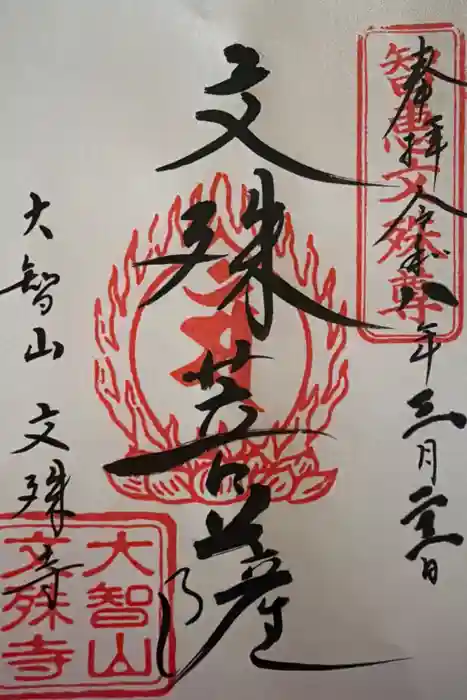 奉拝 令和八年三月二十二日
智恵文殊尊
文殊菩薩
大智山 文殊寺
大智山
文殊寺